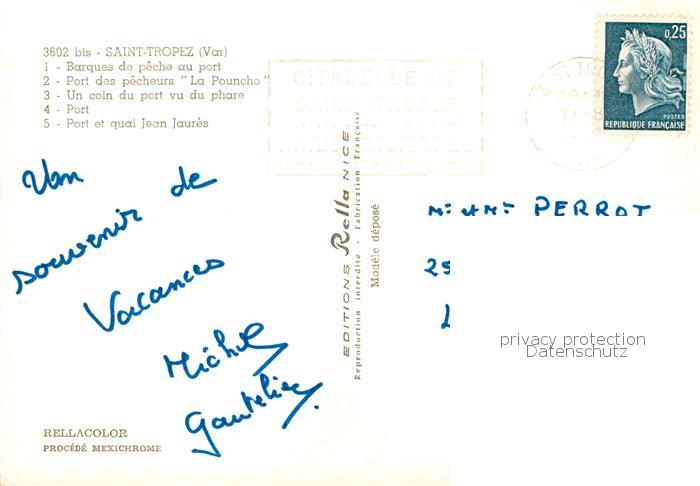 3602 bis - SAINT-TROPEZ (Var)
1 - Barques de pêche au port
2 - Port des pêcheurs "La Pouncho"
3 - Un coin du port vu du phare
4 - Port
5 - Port et quai Jean Jaurès
CITADELLE DE
0,25
POSTES
REPUBLIQUE FRANÇAISE
de
souvenir
Vacances
Michel
Gautelier
RELLACOLOR
PROCÉDÉ MEXICHROME
EDITIONS Rella NICE
Reproduction interdite - Fabrication Française
Modèle déposé
PERROT
25
privacy protection
Datenschutz